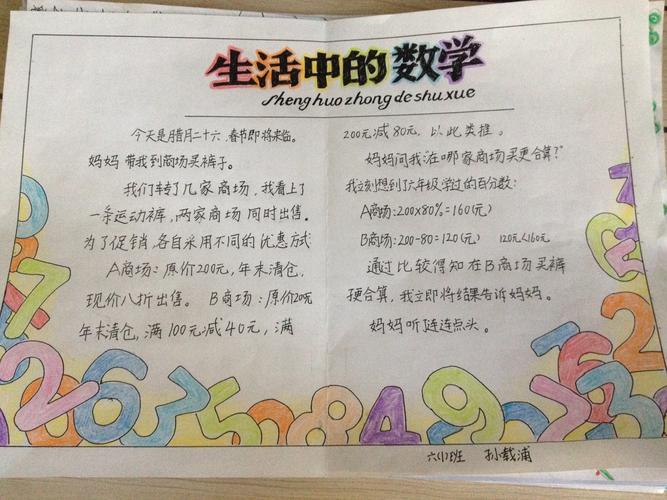 生活中的数学
shenghuozhongdeshuxue
今天是月腊月二十六,春节即将来临。
妈妈带我到商场买裤子。
我们转了几家商场,我看上了
一条运动裤,两家商场同时出售。
为了促销,各自采用不同的优惠方式
A商场:原价200元,年末清仓,
现价八折出售。B商场:原价200元
年末清仓,满100元减40元,满
200元减80元,以此类推。
妈妈问我:"在哪家商场买更合算?"
我立刻想到了六年级学过的百分数:
A商场:200×80%=160(元)
B商场:200-80=120(元) 120元<160元
通过比较得知在B商场买裤
更合算,我立即将结果告诉妈妈。
妈妈听了连连点头。
六(1)班 孙载浦